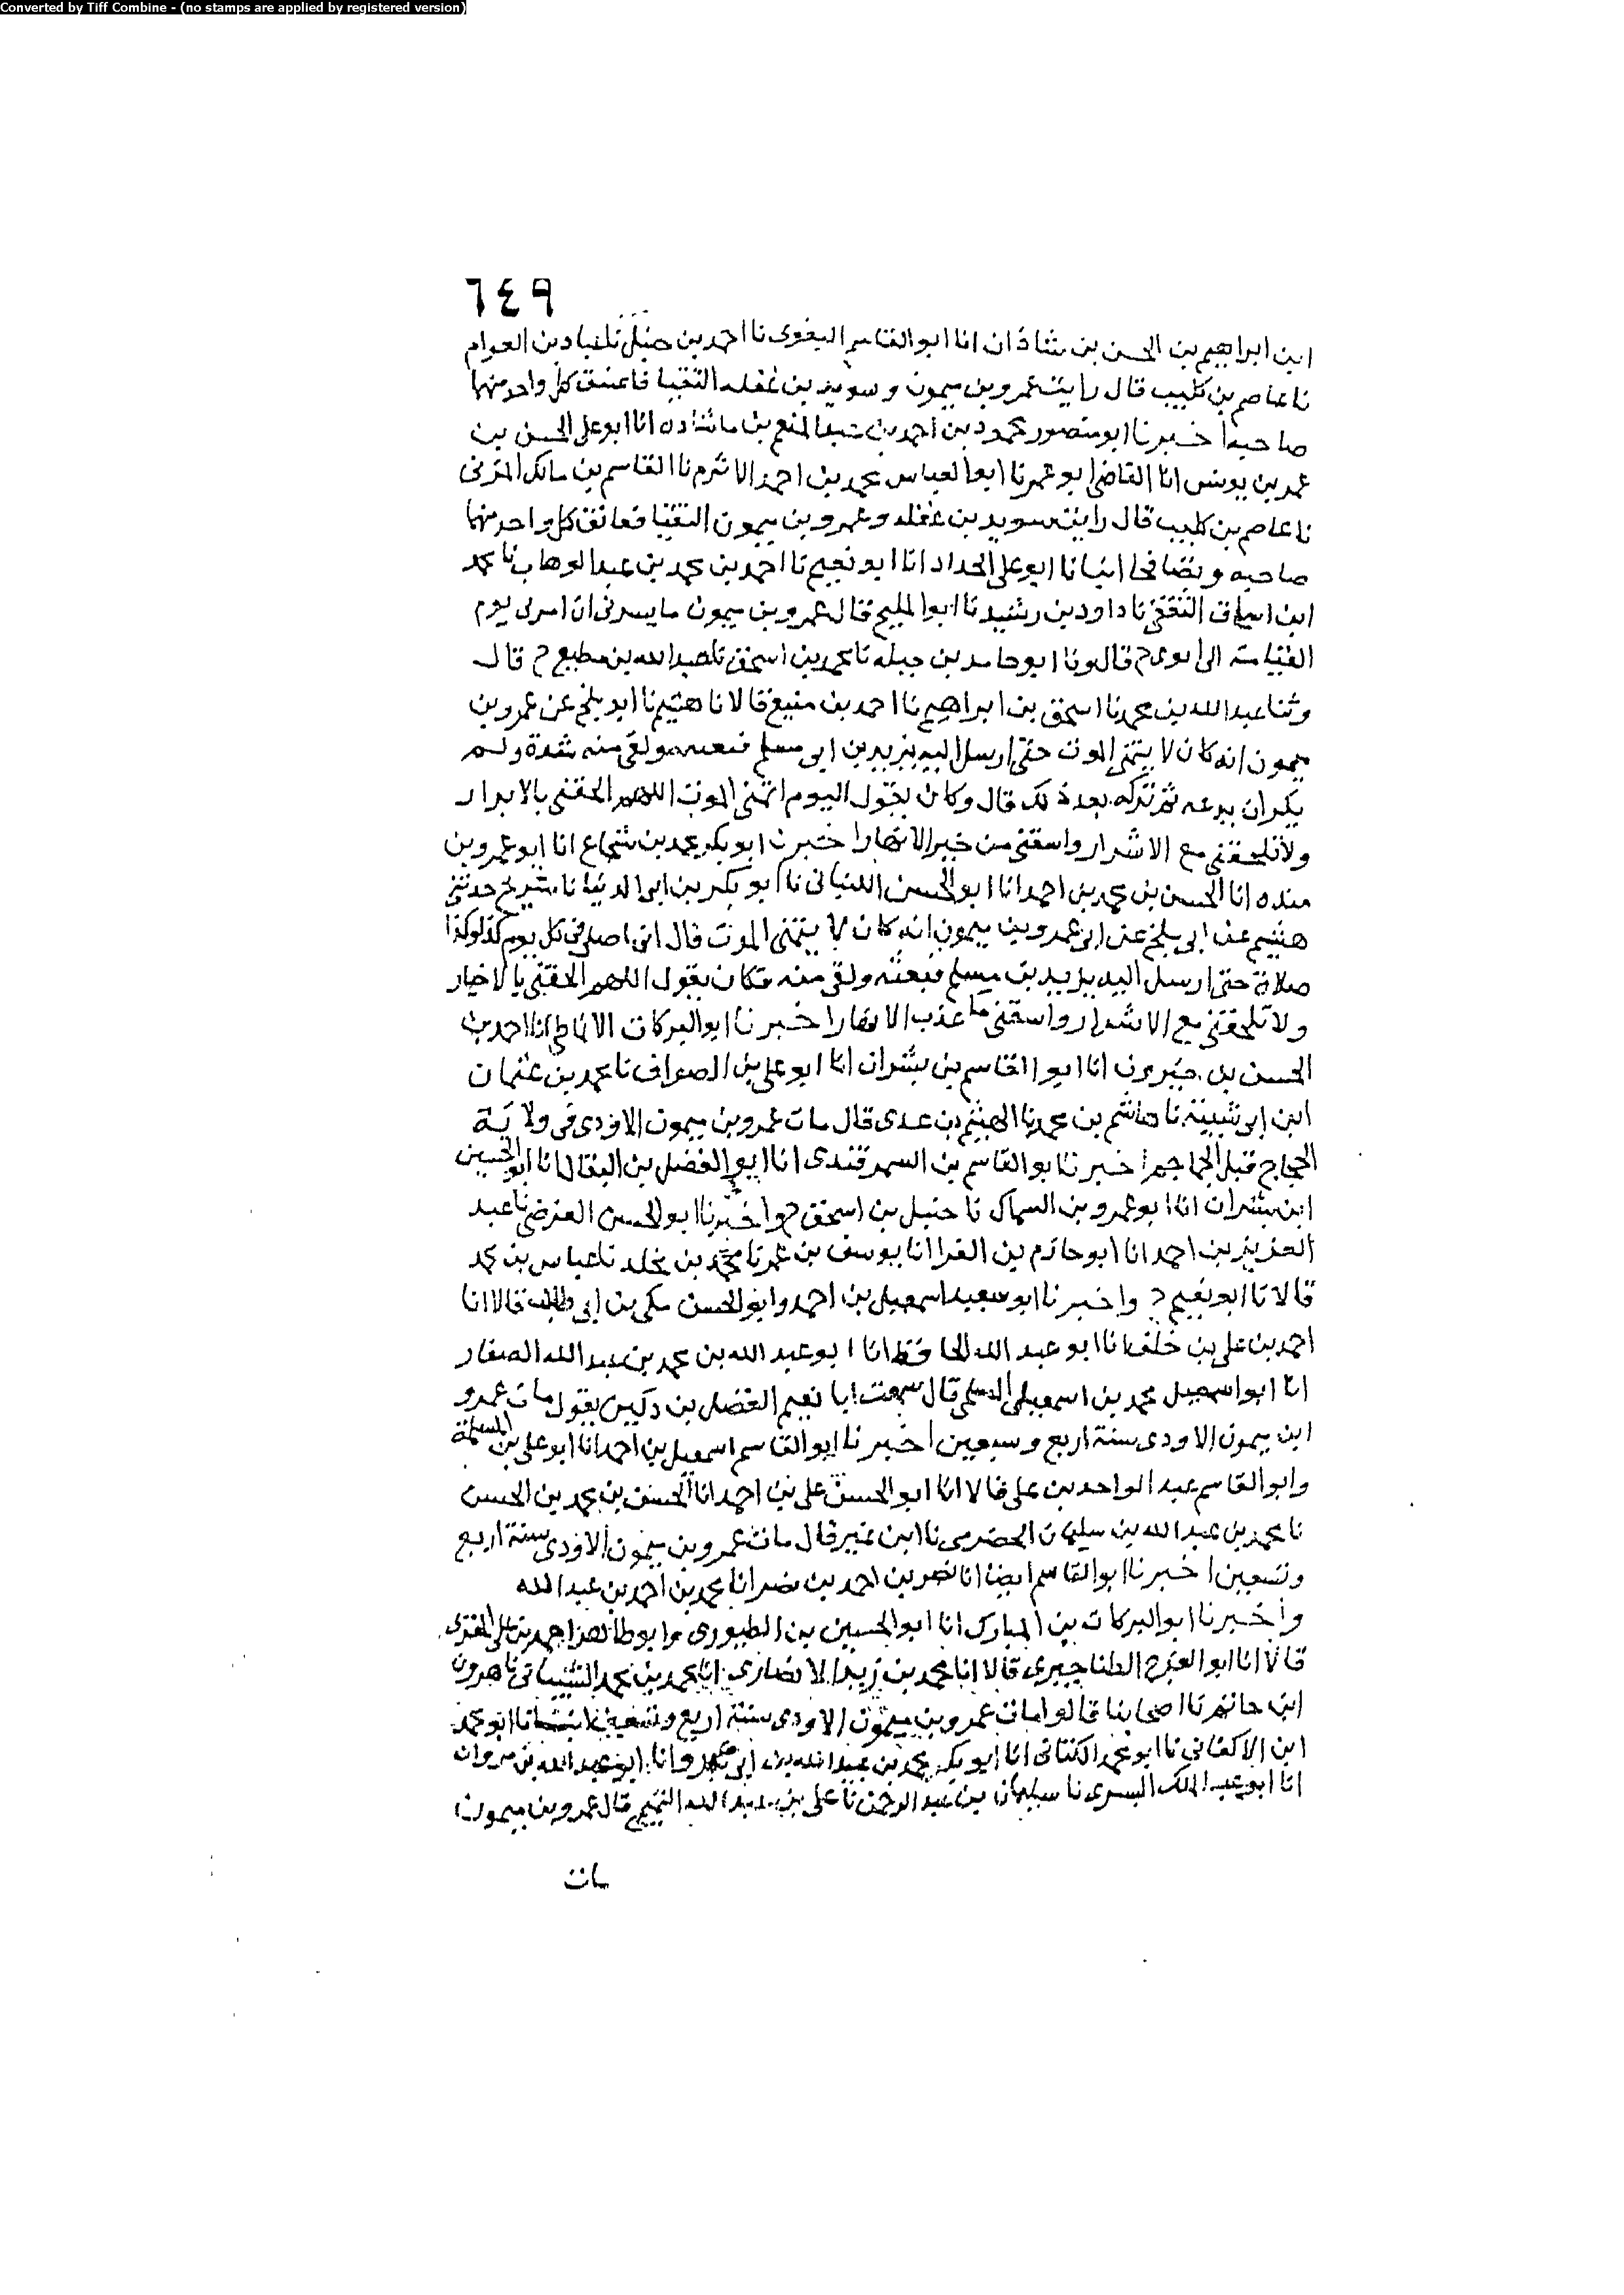 Converted by Tiff Combine - (no stamps are applied by registered version)
٦٤٩
ابن ابراهيم بن الحسن بن شاذان انا ابو القاسم البغوى نا احمد بن حنبل نا عباد بن العوام
نا عاصم بن كليب قال رايت عمرو بن ميمون وسويد بن غفله التقيا فاعتنق كل واحد منهما
صاحبه اخبرنا ابو منصور محمود بن احمد بن عبد المنعم بن ماشاده انا ابو على الحسن بن
عمر بن يونس انا القاضى ابو عمر نا ابو العباس محمد بن احمد الاثرم نا القاسم بن مالك المزنى
نا عاصم بن كليب قال رايت سويد بن غفله وعمرو بن ميمون التقيا فعانق كل واحد منهما
صاحبه وتصافحا انبانا ابو على الحداد انا ابو نعيم نا احمد بن محمد بن عبد الوهاب نا محمد
ابن اسحاق الثقفى نا داود بن رشيد نا ابو المليح قال عمرو بن ميمون ما يسرنى ان امرى يوم
القيامة الى ابوى ح قال ونا ابو حامد بن جبله نا محمد بن اسحق نا عبد الله بن مطيع ح قال
وثنا عبد الله بن محمد نا اسحق بن ابراهيم نا احمد بن منيع قالا نا هشيم نا ابو بلج عن عمرو بن
ميمون انه كان لا يتمنى الموت حتى ارسل اليه يزيد بن ابى مسلم ولقى منه شدة ولم
يكد ان يدعه ثم تركه بعد ذلك قال وكان يقول اليوم اتمنى الموت اللهم الحقنى بالابرار
ولا تلحقنى مع الاشرار واسقنى من خير الانهار اخبرنا ابو بكر محمد بن شجاع انا ابو عمرو بن
منده انا الحسن بن محمد بن احمد انا ابو الحسن اللنبانى نا ابو بكر بن ابى الدنيا نا شريح حدثنى
هشيم عن ابى بلج عن ابى عمرو بن ميمون انه كان لا يتمنى الموت قال انى اصلى فى كل يوم كذا وكذا
صلاة حتى ارسل اليه يزيد بن مسلم ولقى منه فكان يقول اللهم الحقنى بالاخيار
ولا تلحقنى مع الاشرار واسقنى ما عذب الانهار اخبرنا ابو البركات الانماطى انا احمد بن
الحسن بن خيرون انا ابو القاسم بن بشران انا ابو على بن الصواف نا محمد بن عثمان
ابن ابى شيبة نا هاشم بن محمد نا الهيثم بن عدى قال مات عمرو بن ميمون الاودى فى ولاية
الحجاج قبل الجماجم اخبرنا ابو القاسم بن السمرقندى انا ابو الفضل بن البقال انا ابو الحسين
ابن بشران انا ابو عمرو بن السماك نا حنبل بن اسحق ح واخبرنا ابو الحسن الفرضى نا عبد
العزيز بن احمد انا ابو حازم بن الفرا انا يوسف بن عمر نا محمد بن مخلد نا عباس بن محمد
قالا نا ابو نعيم ح واخبرنا ابو سعيد اسمعيل بن احمد وابو الحسن مكى بن ابى طالب قالا انا
احمد بن على بن خلف انا ابو عبد الله الحافظ انا ابو عبد الله بن محمد بن عبد الله الصفار
انا ابو اسمعيل محمد بن اسمعيل السلمى قال سمعت ابا نعيم الفضل بن دكين يقول مات عمرو
ابن ميمون الاودى سنة اربع وسبعين اخبرنا ابو القاسم اسمعيل بن احمد انا ابو على بن المسلمة
وابو القاسم عبد الواحد بن على قالا انا ابو الحسن على بن احمد انا الحسن بن محمد بن الحسن
نا محمد بن عبد الله بن سليمان الحضرمى نا ابن نمير قال مات عمرو بن ميمون الاودى سنة اربع
وتسعين اخبرنا ابو القاسم ايضا انا نصر بن احمد بن نصر انا محمد بن احمد بن عبد الله
واخبرنا ابو البركات بن المبارك انا ابو الحسين بن الطيورى وابو طاهر احمد بن على المقرى
قالا انا ابو الفرج الطناجيرى قالا انا محمد بن زيد الانصارى انا محمد بن محمد الشيبانى نا هرون
ابن حاتم نا اصحابنا قالوا مات عمرو بن ميمون الاودى سنة اربع وتسعين انبانا ابو محمد
ابن الاكفانى نا ابو محمد الكتانى انا ابو بكر محمد بن عبد الله بن ابى عمرو انا ابو عبد الله بن مروان
انا ابو عبد الملك البسرى نا سليمان بن عبد الرحمن نا على بن عبد الله التميمى قال عمرو بن ميمون
مات